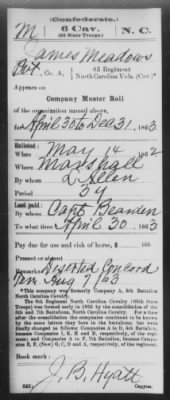 (Confederate.)
M 6 Cav. N. C.
(65 State Troops.)
James Meadows
Pvt., Co. A, 65 Regiment
North Carolina Vols. (Cav.)*
Appears on
Company Muster Roll
of the organization named above,
for April 30 to Dec 31, 1863.
Enlisted:
When May 14, 1862
Where Marshall
By whom L. Allen
Period 3 y
Last paid:
By whom Capt Bearden
To what time April 30, 1863
Pay due for use and risk of horse, $ 100
Present or absent
Remarks: Deserted Concord
Ten Aug 7 63
*This company was formerly Company A, 5th Battalion
North Carolina Cavalry.
The 6th Regiment North Carolina Cavalry (65th State
Troops) was formed in 1863 by the consolidation of the
5th and 7th Battalions, North Carolina Cavalry. For a time
after the consolidation the companies continued to be
known by the same letters they bore in the battalions; but were
finally changed as follows: Companies A to D, 5th Battalion,
became Companies
Book mark:
J. B. Hyatt
Copyist.